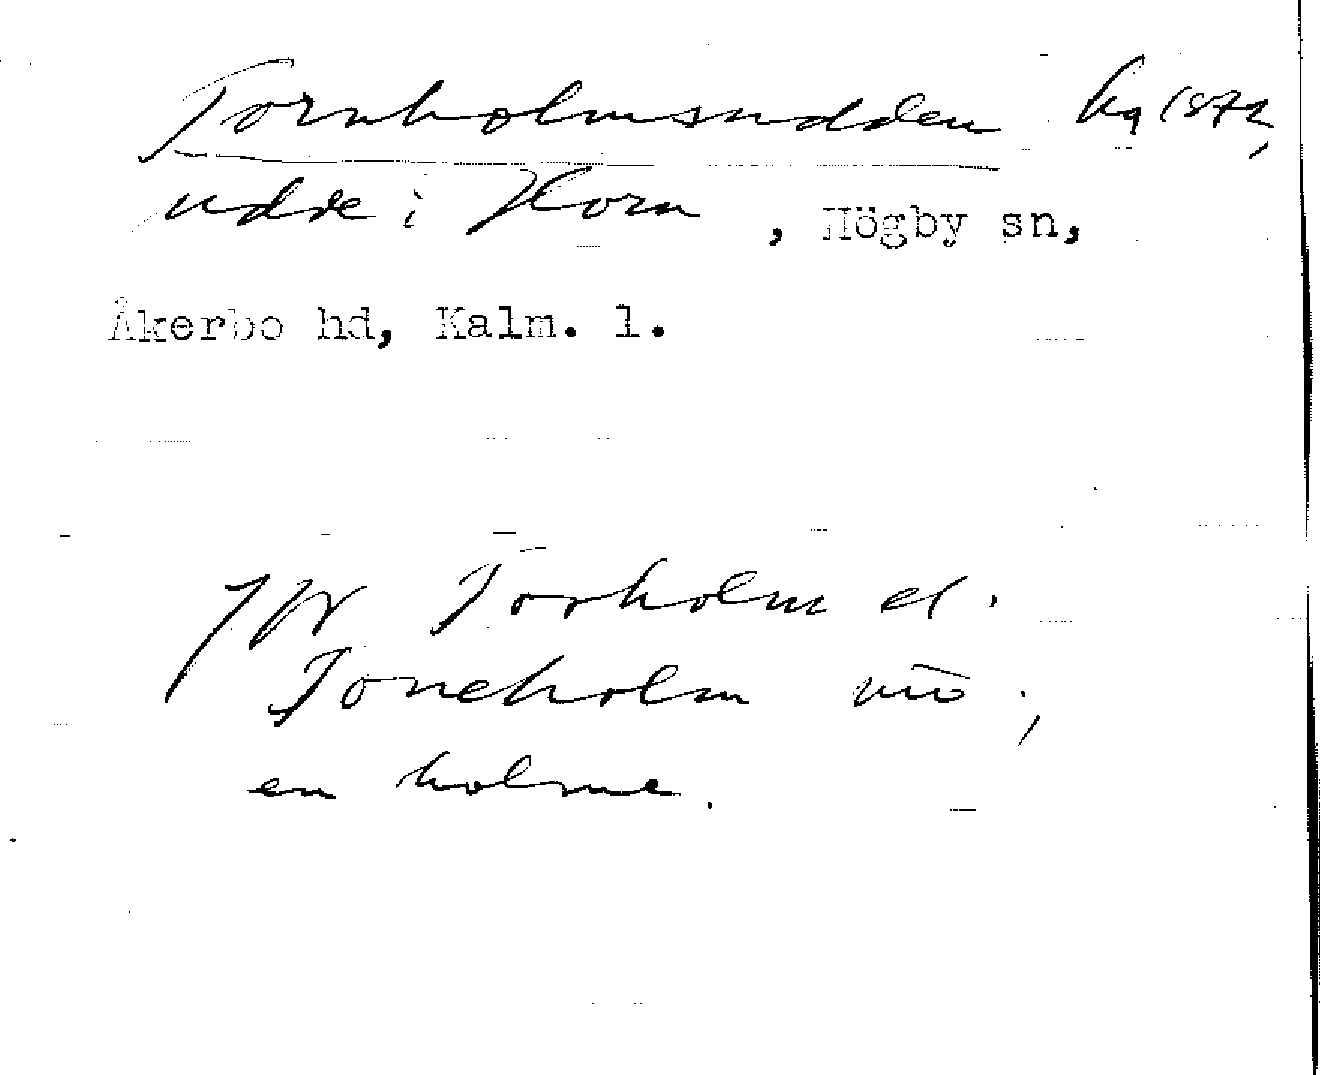 Tornholmsudden hq 1872,
udde i Horn, Högby sn,
Åkerbo hd, Kalm. l.
Jfr Torholm el.
Torneholm
en holme.